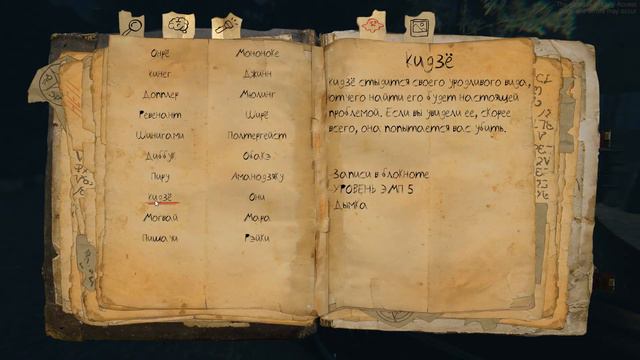 Онрё
Мононоке
Кинег
Джинн
Допплер
Мюлинг
Ревенант
Ширё
Шинигами
Полтергейст
Диббук
Обакэ
Пиру
Аманодзяку
Кидзё
Они
Могвай
Мара
Пишачи
Рэйки
Кидзё
Кидзё стыдится своего уродливого вида,
отчего найти его будет настоящей
проблемой. Если вы увидели ее, скорее
всего, она попытается вас убить.
Записи в блокноте
УРОВЕНЬ ЭМП 5
Дымка